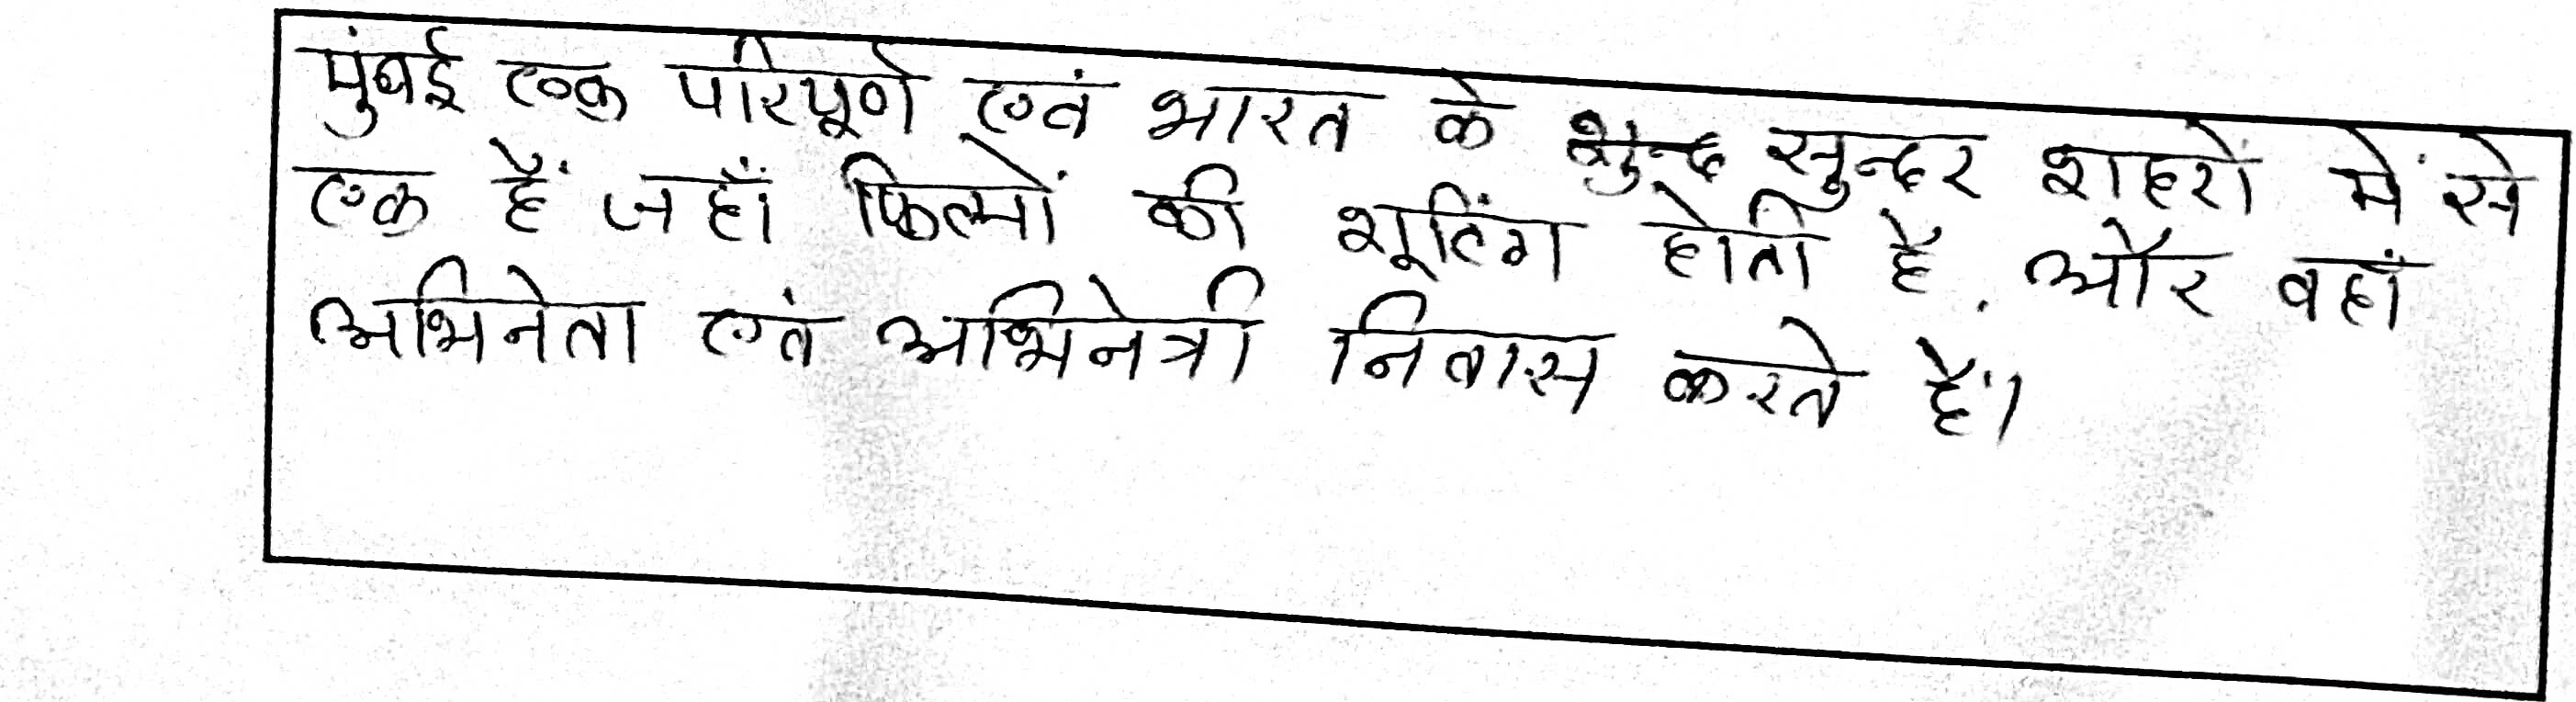 मुंबई एक परिपूर्ण एवं भारत के शुन्द सुन्दर शहरों में से
एक हैं जहाँ फिल्मों की शूटिंग होती है, और वहाँ
अभिनेता एवं अभिनेत्री निवास करते हैं।